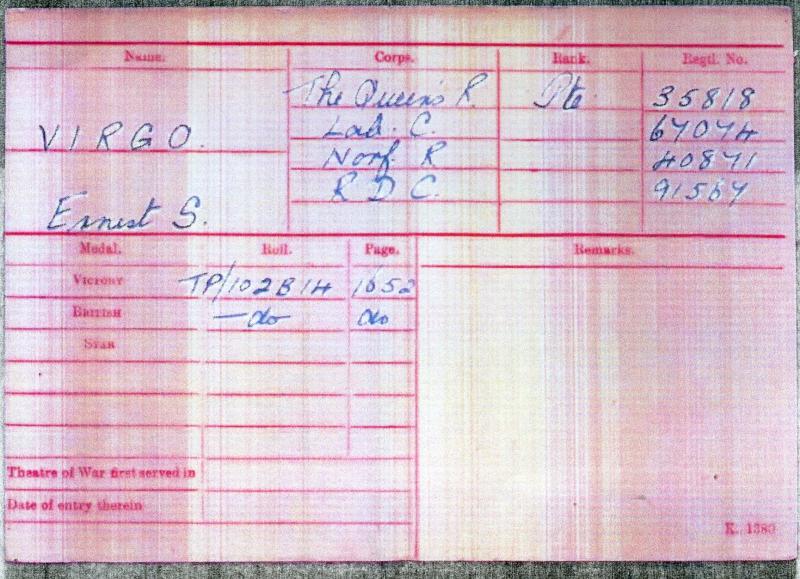 Name. Corps. Rank. Regtl. No.
The Queen's R. Pte. 35818
VIRGO. Lab. C. 67074
Norf. R 40871
R D C. 91567
Ernest S.
Medal. Roll. Page. Remarks.
VICTORY TP/102B14 1652
BRITISH —do do
STAR
Theatre of War first served in
Date of entry therein
K. 1380